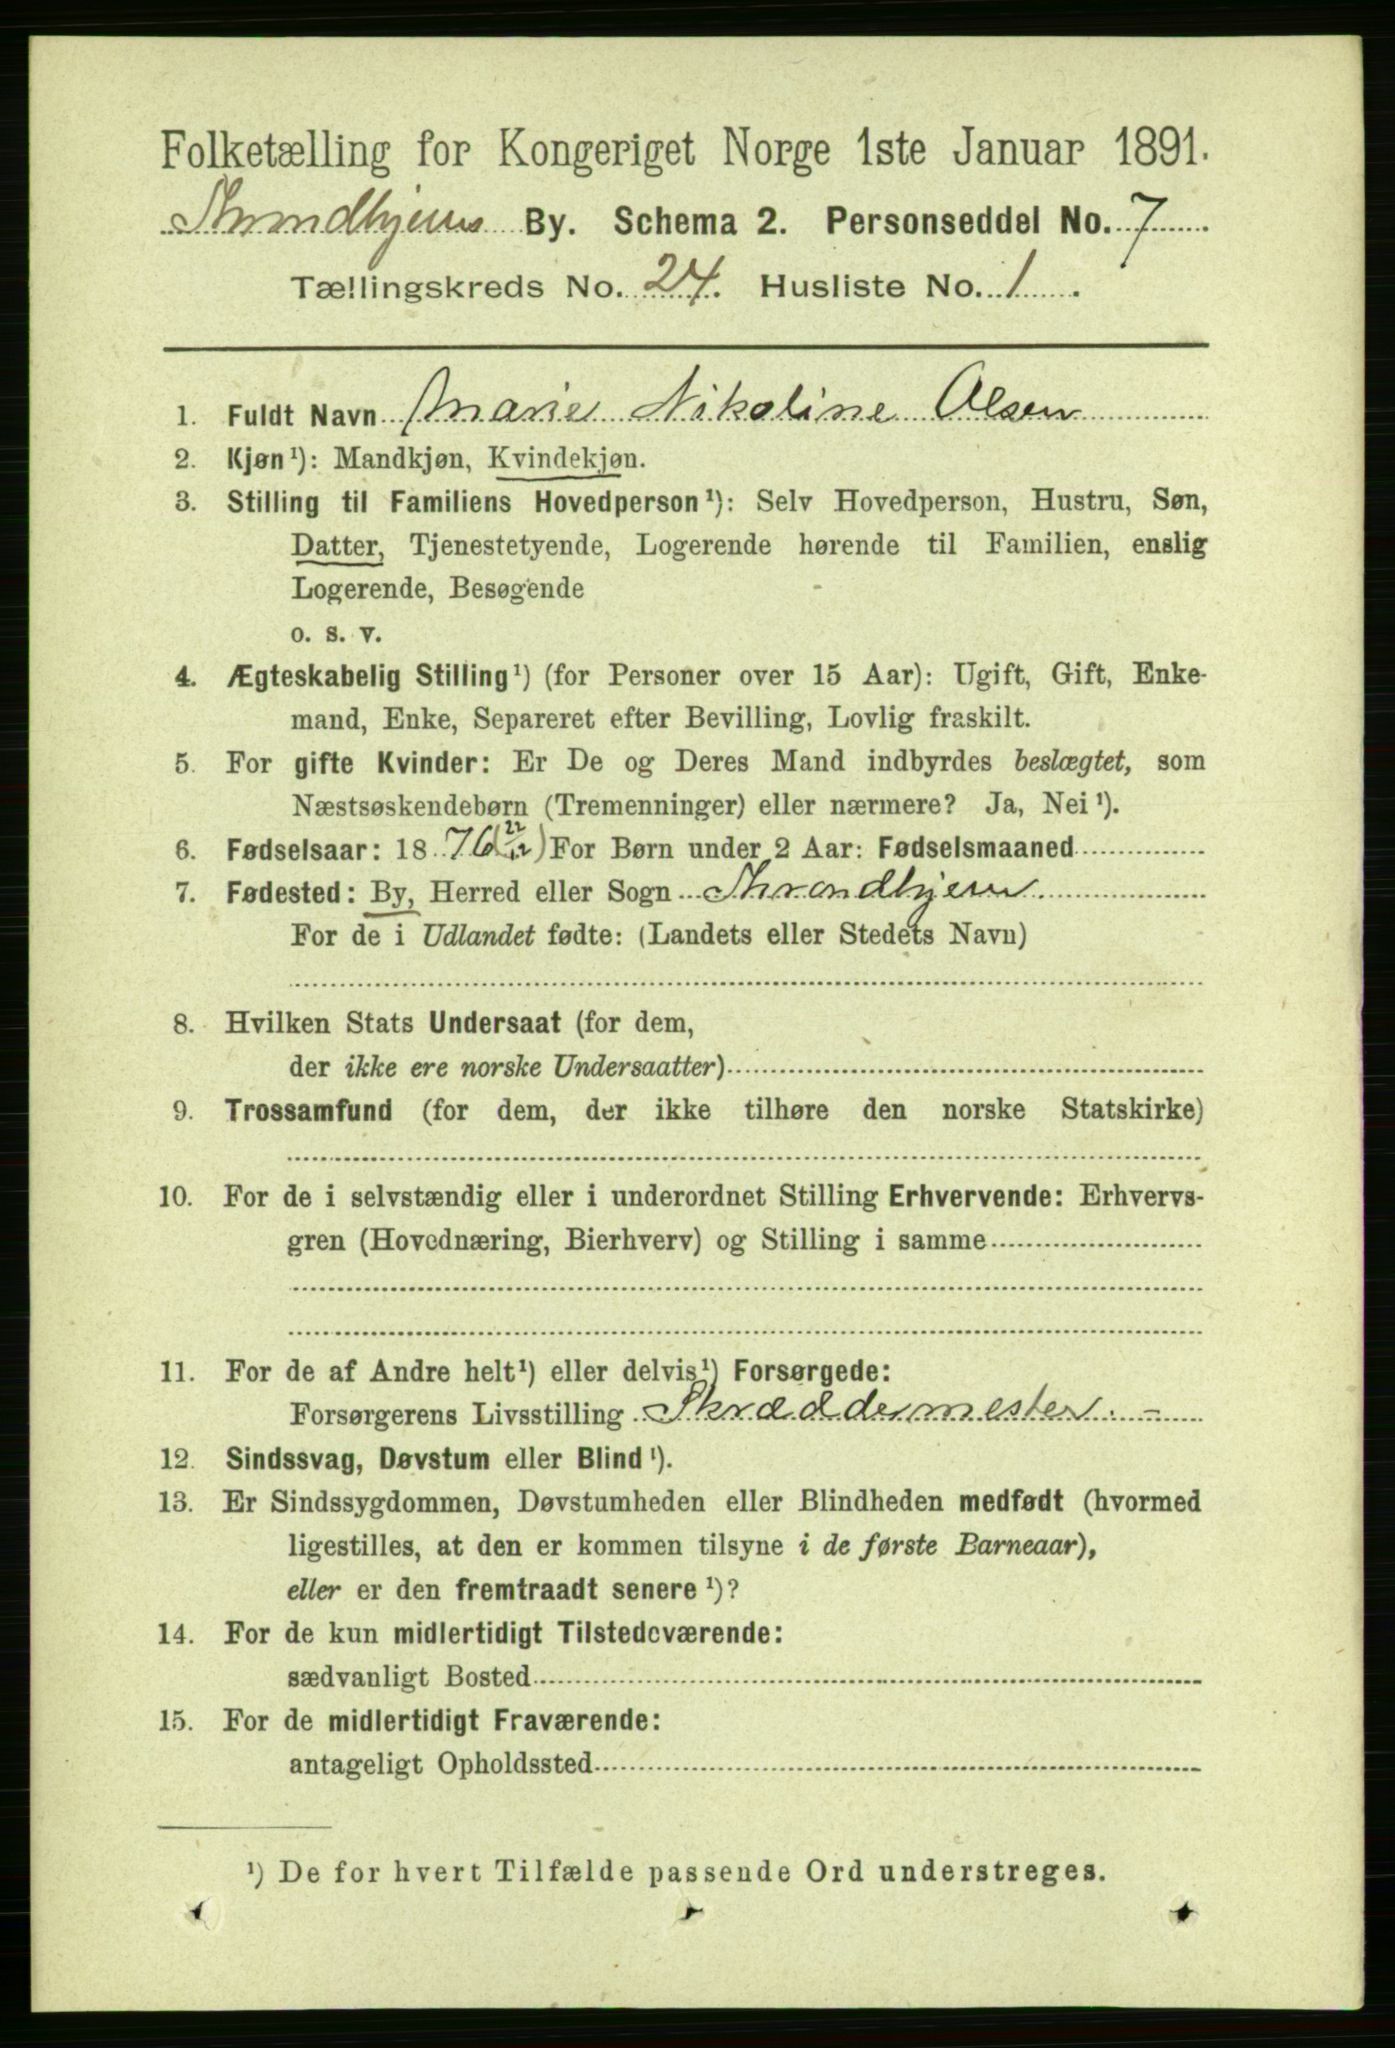 Folketælling for Kongeriget Norge 1ste Januar 1891.
Throndhjems By. Schema 2. Personseddel No. 7
Tællingskreds No. 24. Husliste No. 1.
1. Fuldt Navn Marie Nikoline Olsen
2. Kjøn¹): Mandkjøn, Kvindekjøn.
3. Stilling til Familiens Hovedperson¹): Selv Hovedperson, Hustru, Søn,
Datter, Tjenestetyende, Logerende hørende til Familien, enslig
Logerende, Besøgende
o. s. v.
4. Ægteskabelig Stilling¹) (for Personer over 15 Aar): Ugift, Gift, Enke-
mand, Enke, Separeret efter Bevilling, Lovlig fraskilt.
5. For gifte Kvinder: Er De og Deres Mand indbyrdes beslægtet, som
Næstsøskendebørn (Tremenninger) eller nærmere? Ja, Nei¹).
6. Fødselsaar: 1876 (22/12) For Børn under 2 Aar: Fødselsmaaned
7. Fødested: By, Herred eller Sogn Throndhjem
For de i Udlandet fødte: (Landets eller Stedets Navn)
8. Hvilken Stats Undersaat (for dem,
der ikke ere norske Undersaatter)
9. Trossamfund (for dem, der ikke tilhøre den norske Statskirke)
10. For de i selvstændig eller i underordnet Stilling Erhvervende: Erhvervs-
gren (Hovednæring, Bierhverv) og Stilling i samme
11. For de af Andre helt¹) eller delvis¹) Forsørgede:
Forsørgerens Livsstilling Skræddermester. -
12. Sindssvag, Døvstum eller Blind¹).
13. Er Sindssygdommen, Døvstumheden eller Blindheden medfødt (hvormed
ligestilles, at den er kommen tilsyne i de første Barneaar),
eller er den fremtraadt senere¹)?
14. For de kun midlertidigt Tilstedeværende:
sædvanligt Bosted
15. For de midlertidigt Fraværende:
antageligt Opholdssted
¹) De for hvert Tilfælde passende Ord understreges.